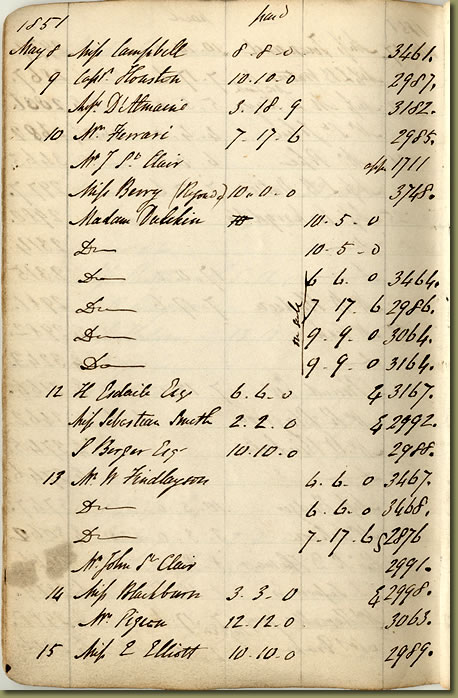 1851 paid
May 8 Miss Campbell 8-8-0 3461.
9 Capt. Houston 10-10-0 2987.
3-18-9 3182.
10 Mr. Ferrari 7-17-6 2985.
Mr J St. Clair 1711
Miss Berry 10-0-0 3748.
Madam 10-5-0
Do 10-5-0
Do 6-6-0 3464.
Do 7-17-6 2986.
Do 9-9-0 3064.
Do 9-9-0 3164.
12 H Esdaile Esqr 6-6-0 3167.
Miss Sebastian Smith 2-2-0 2992.
S Berger Esqr 10-10-0 2988.
13 Mr W Findlayson 6-6-0 3467.
Do 6-6-0 3468.
Do 7-17-6 2876
Mr John St Clair 2991.
14 Miss Blackburn 3-3-0 2998.
Mr. Pigeon 12-12-0 3063.
15 Miss E Elliott 10-10-0 2989.